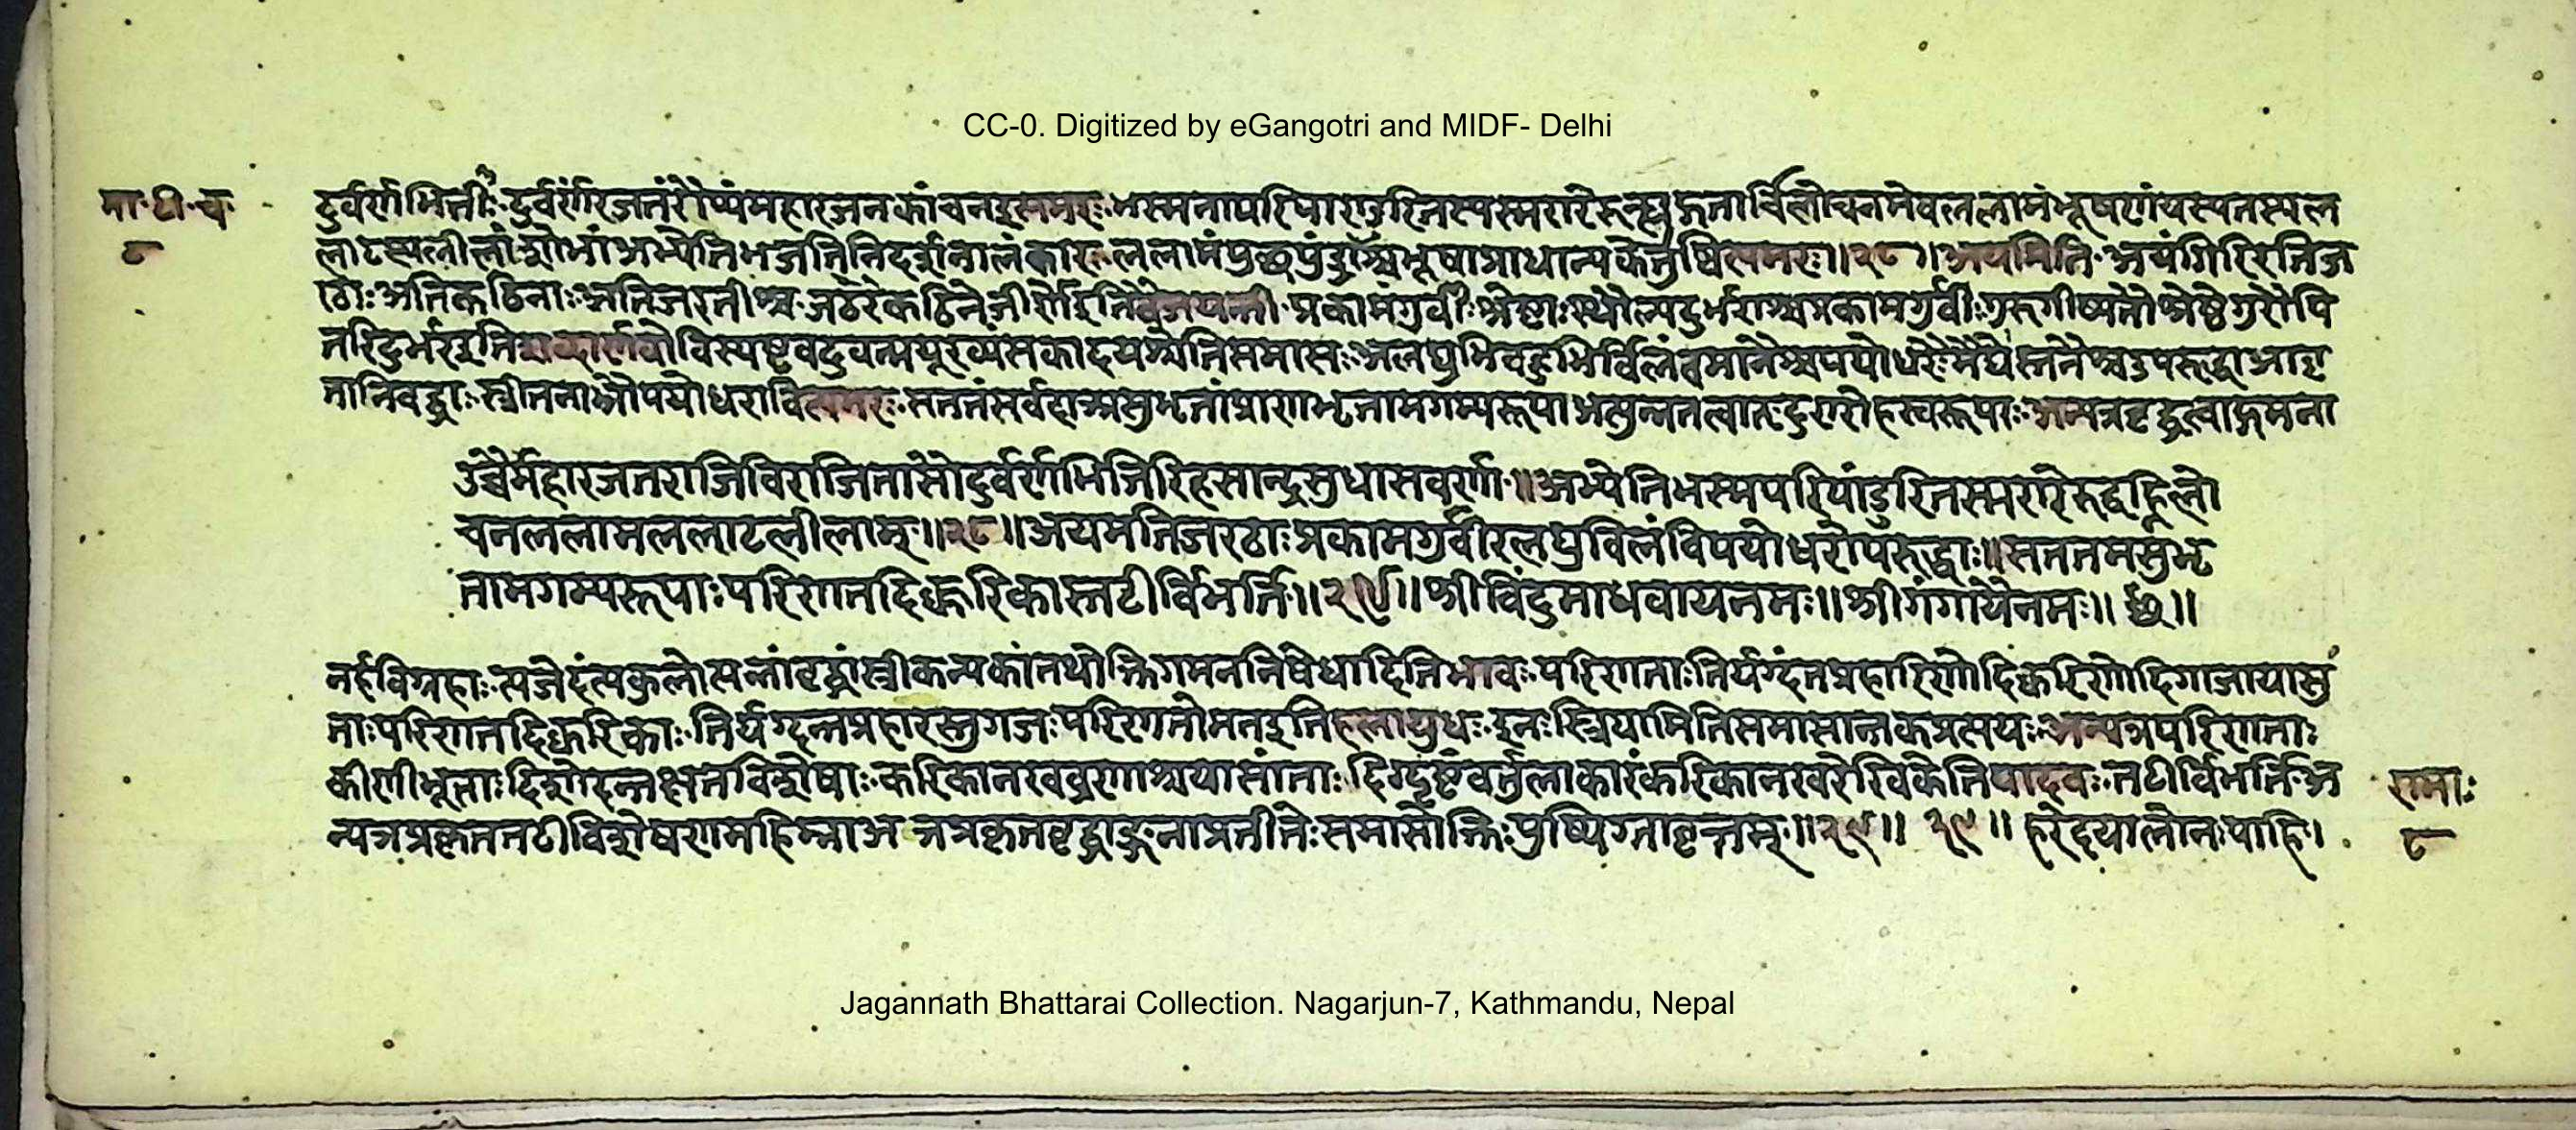 CC-0. Digitized by eGangotri and MIDF- Delhi
मा॰टी॰च॰
८
दुर्वर्णभित्तीः दुर्वर्णं रजतं रौप्यं महारजनकांचन इत्यमरः भस्मना परिपाण्डुरितस्य स्मरारेः लोचनमेव ललामं भूषणं यस्य तस्य ल
लाटस्य लीलां शोभां अभ्येति भजतीति निदर्शनालंकारः ललामं पुच्छपुंड्राश्वभूषाप्राधान्यकेतुष्वित्यमरः॥२८॥अयमिति अयं गिरिरतिज
ठाः अतिकठिनाः अतिजरतीश्च जठरः कठिने जीर्णे इति वैजयन्ती प्रकामं गुर्वीः श्रेष्ठाः स्थौल्यदुर्भराश्च प्रकामगुर्वीः गुरुगीष्पतौ श्रेष्ठे गुरौ पि
तरि दुर्भर इति विस्पष्टवदुवन्मयूरव्यंसकादयश्चेति समासः अलघुभिर्बहुभिर्विलंबमानैश्च पयोधरैः मेघैः स्तनैश्च उपरुद्धा आवृ
ता निबद्धाः स्त्रीस्तनाब्दौ पयोधरावित्यमरः सततं सर्वदा असुमतां प्राणभृतामगम्यरूपा दुरारोहस्वरूपाः अन्यत्र वृद्धत्वाद्गमना
उच्चैर्महारजतराजिविराजितासौ दुर्वर्णभित्तिरिह सान्द्रसुधासवर्णा॥अभ्येति भस्मपरिपांडुरितस्मरारेरुद्वह्निलो
चनललामललाटलीलाम्॥२८॥अयमतिजरठाः प्रकामगुर्वीरलघुविलंबिपयोधरोपरुद्धाः॥सततमसुभृ
तामगम्यरूपाः परिणतदिक्करिकास्तटीर्बिभर्ति॥२९॥श्रीविंदुमाधवायनमः॥श्रीगंगायैनमः॥
नर्हविग्रहाः त्यजेदंत्यकुले सतां वृद्धां स्त्रीं कन्यकां तथोक्ति गमननिषेधादिति भावः परिणताः तिर्यग्दंतप्रहारिणो दिक्करिणो दिग्गजा यासु
ताः परिणतदिक्करिकाः तिर्यग्दन्तप्रहारस्तु गजः परिणतो मत इति हलायुधः इनः स्त्रियामिति समासान्तकप्रत्ययः अन्यत्र परिणताः
कीर्णीभूताः दन्तक्षतविशेषाः करिका नखव्रणाश्च यासां ताः दिग्दष्टं वर्तुलाकारं करिका नखरेखिकेति यादवः तटीर्बिभर्ति अ
न्यत्र प्रकृततटीविशेषणमहिम्ना अ प्रकृतवृद्धाङ्गनाप्रतीतेः समासोक्तिः पुष्पिताग्रावृत्तम्॥२९॥ २९॥ हरेदयालोनःपाहि।
रामः
८
Jagannath Bhattarai Collection. Nagarjun-7, Kathmandu, Nepal